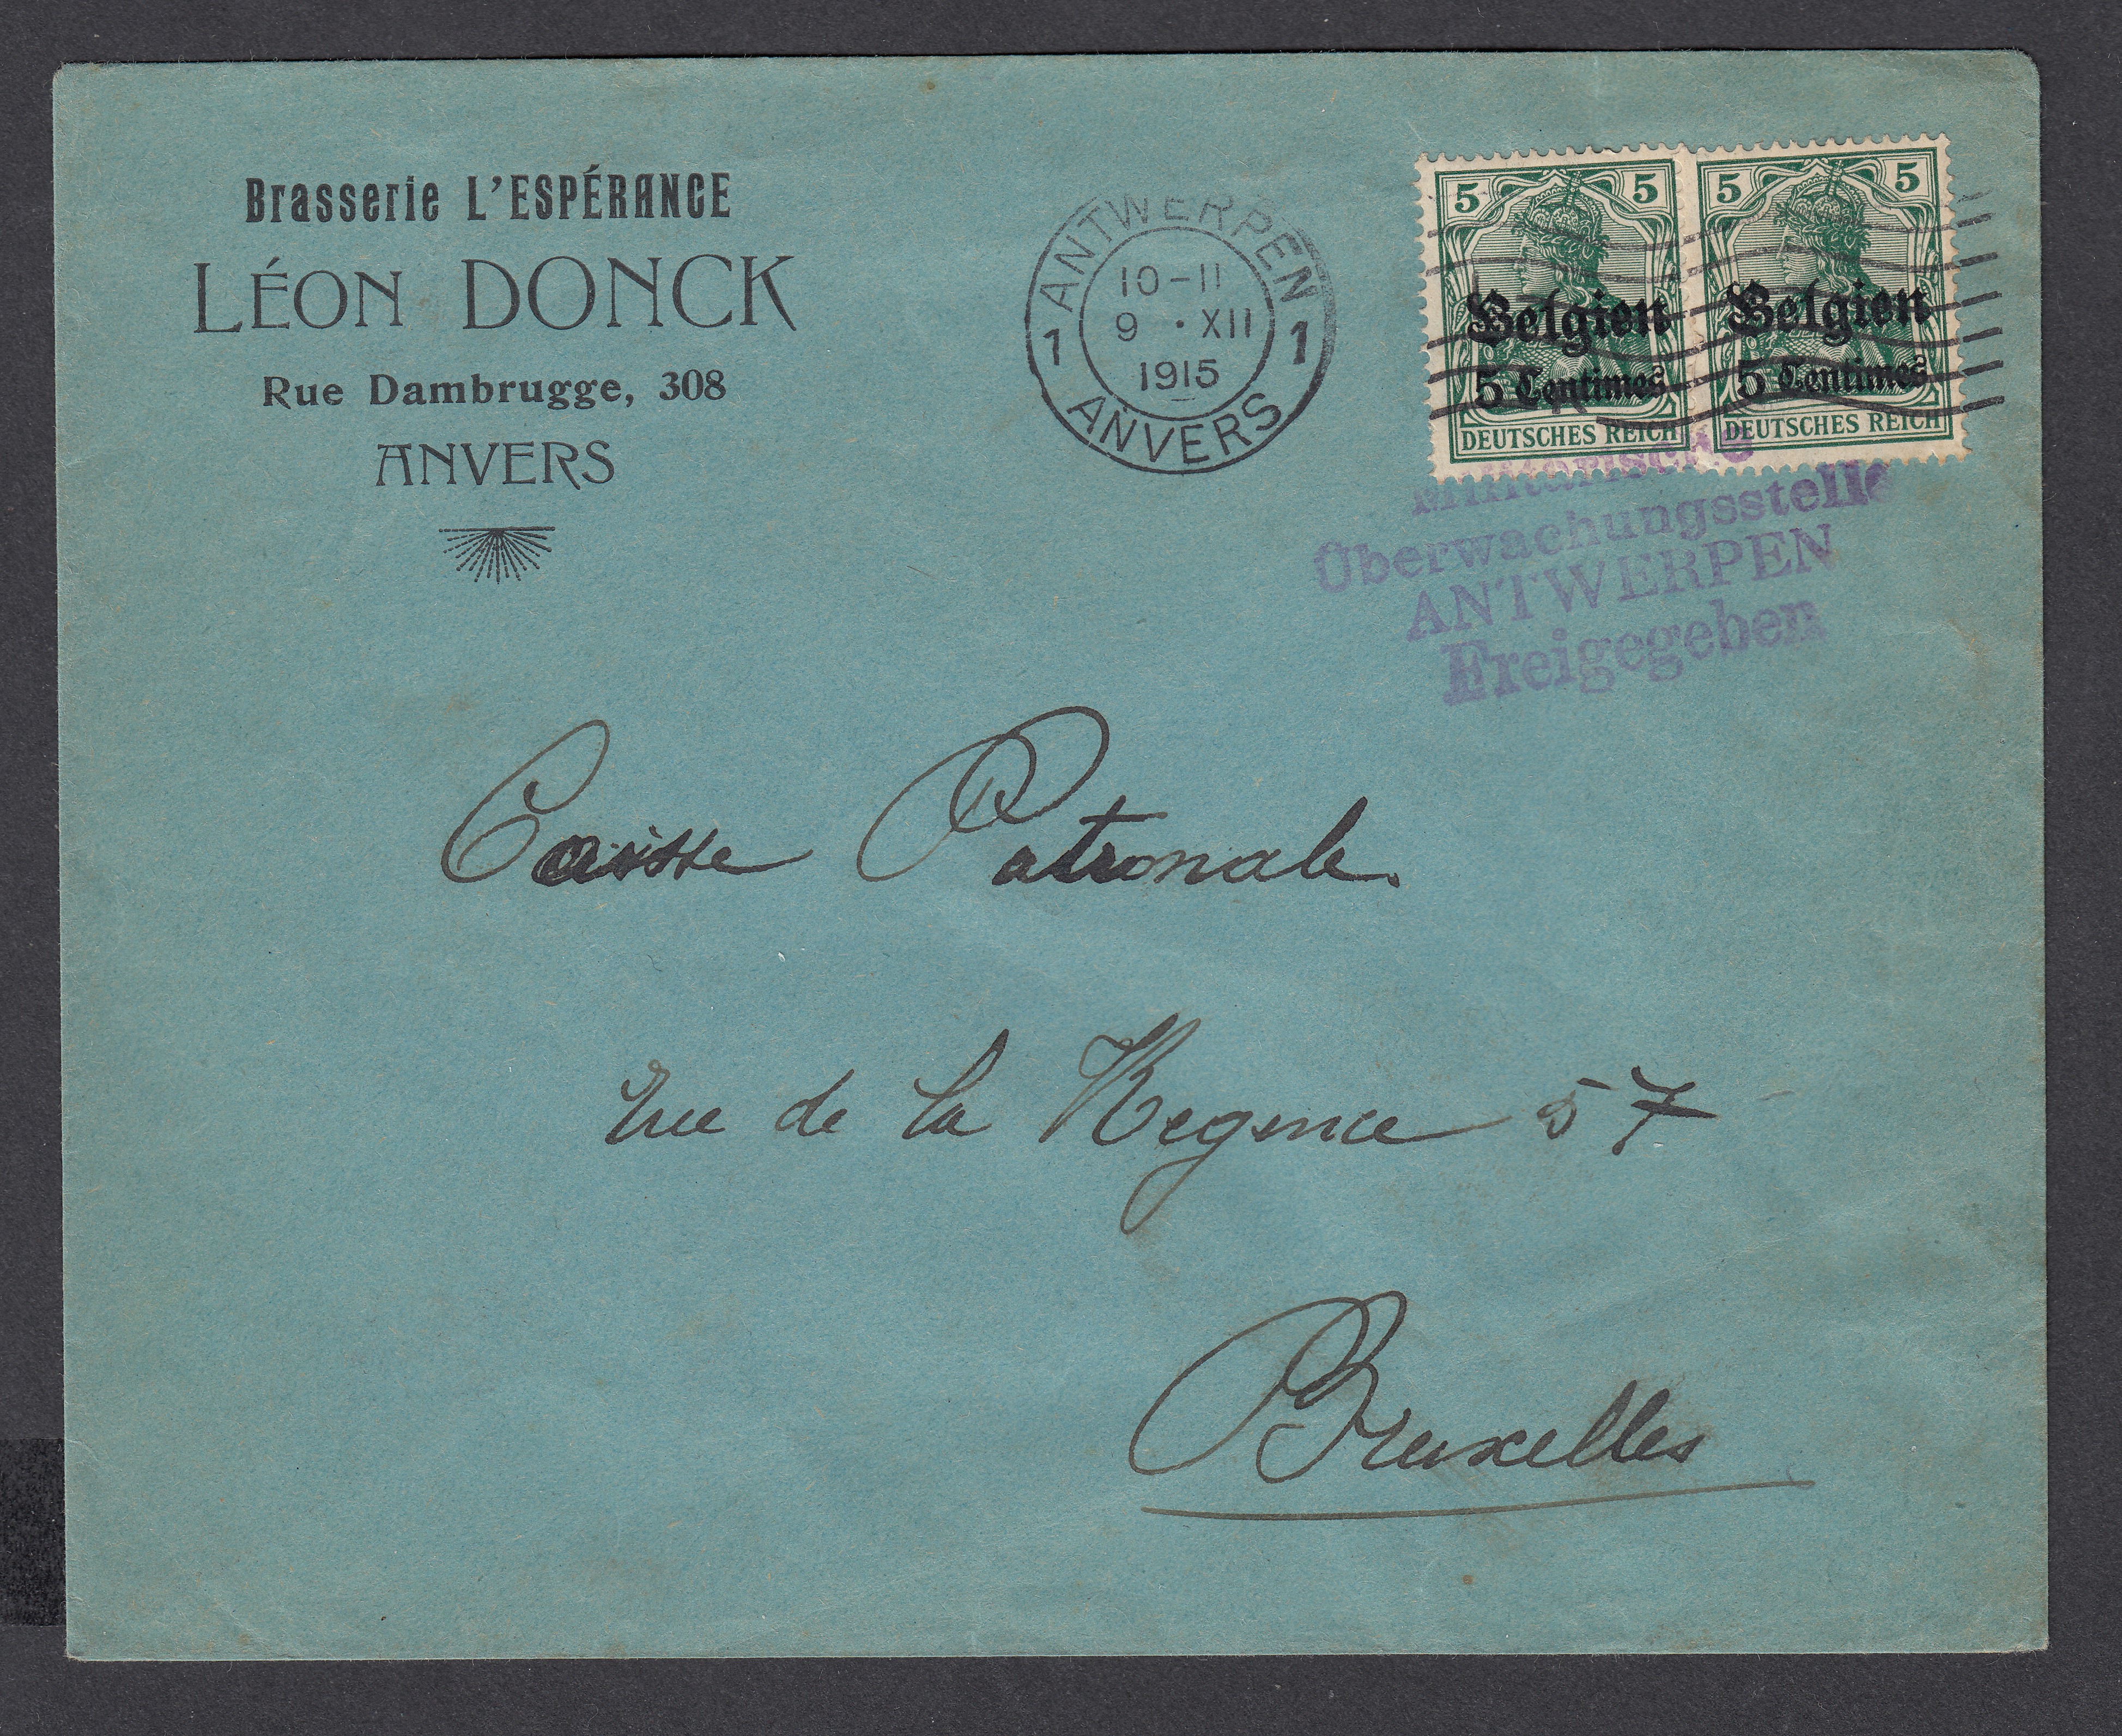 Brasserie L'ESPÉRANCE
LÉON DONCK
Rue Dambrugge, 308
ANVERS
ANTWERPEN
10-11
9 · XII
1915
1 1
ANVERS
5 5
Belgien
5 Centimes
DEUTSCHES REICH
5 5
Belgien
5 Centimes
DEUTSCHES REICH
Militärische
Überwachungsstelle
ANTWERPEN
Freigegeben
Caisse Patronale.
rue de la Regence 57
Bruxelles